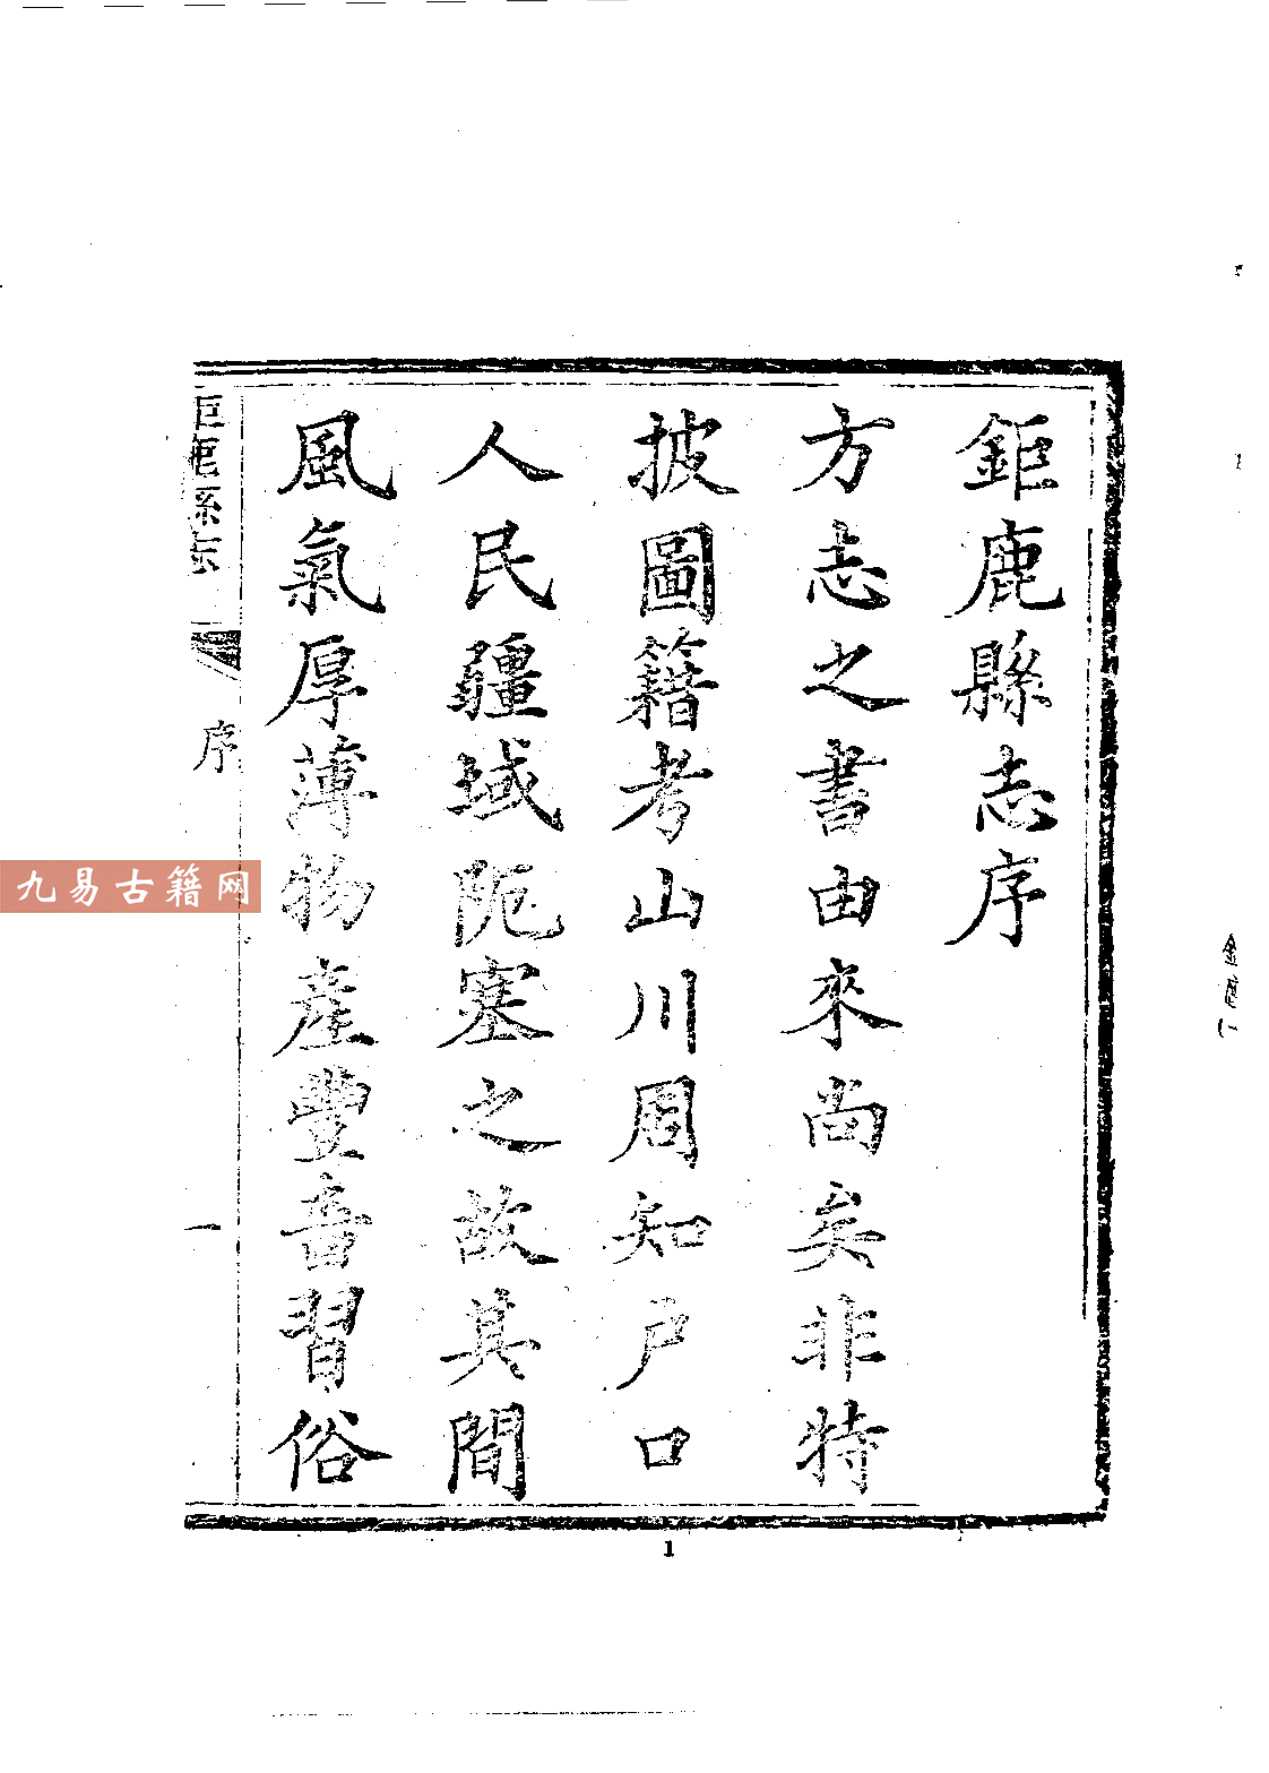 鉅鹿縣志序
方志之書由來尚矣非特
披圖籍考山川周知户口
人民疆域阨塞之故其間
風氣厚薄物產豐嗇習俗
序
一
1
九易古籍网